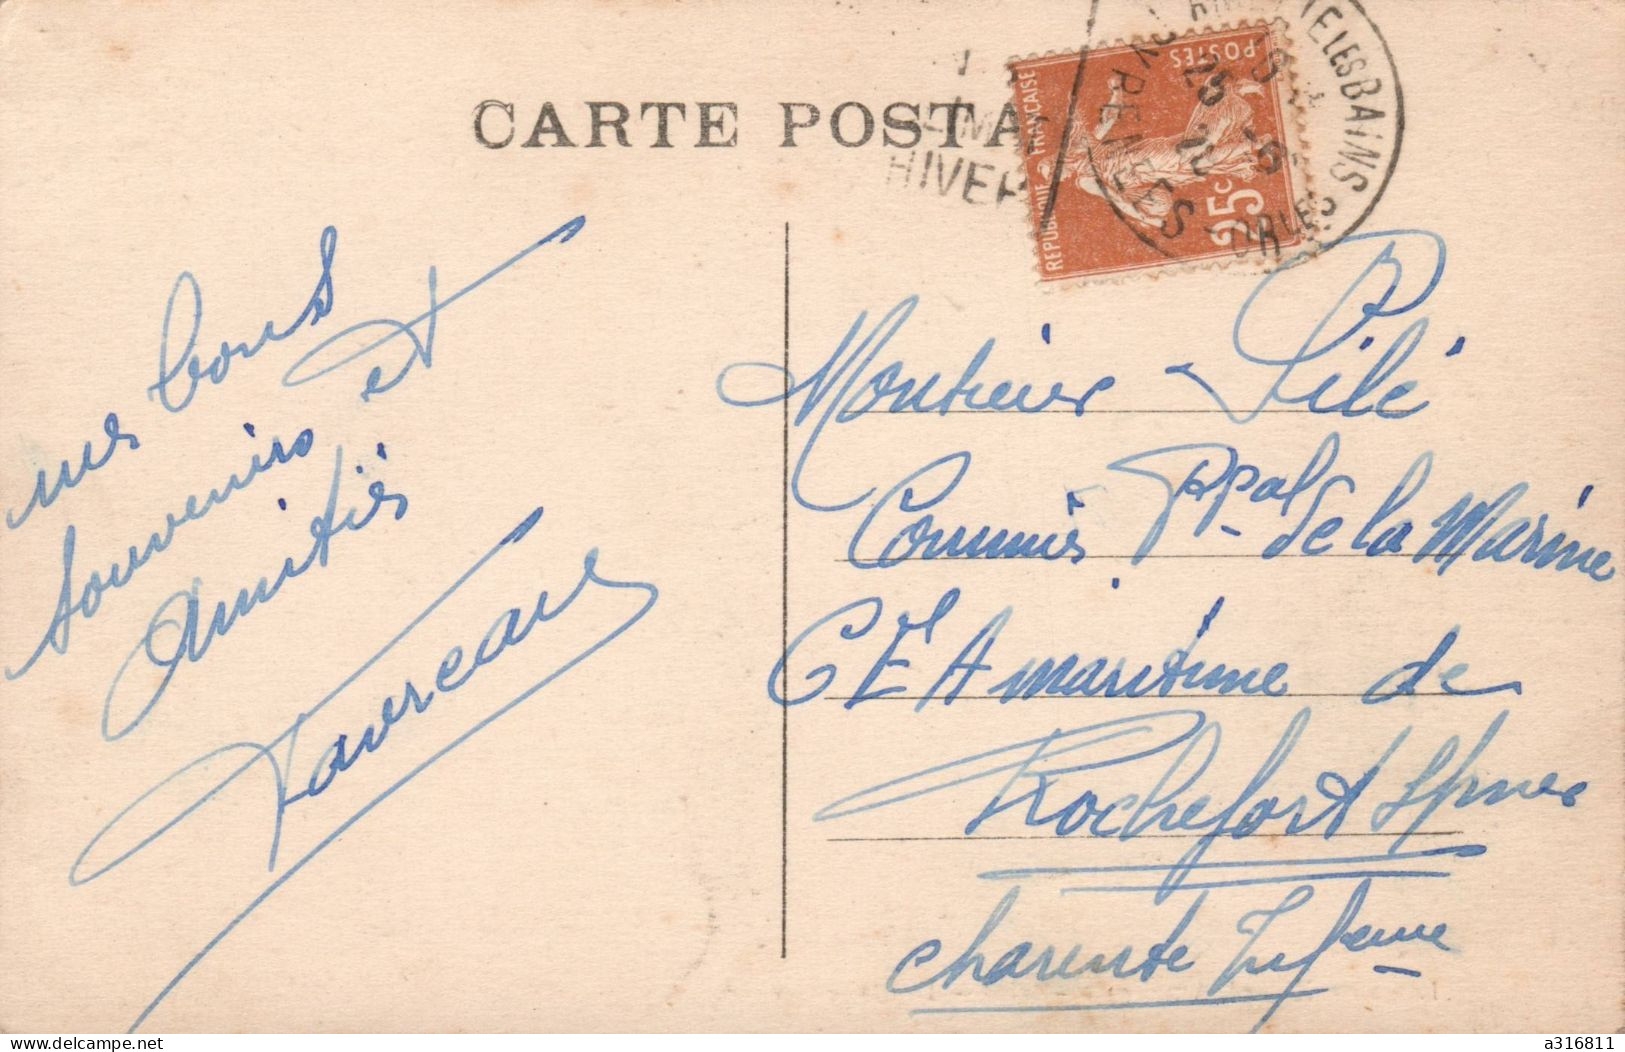 CARTE POSTA
HIVER
REPUBLIQUE FRANÇAISE
POSTES
25c
ELESBAINS
PYRENEES
ORLES
mes bons
souvenirs et
Amitiés
Favereau
Monsieur Pilé
Commis Ppal de la Marine
maritime de
Rochefort s/ mer
Charente Infeure
https://www.delcampe.net
a316811